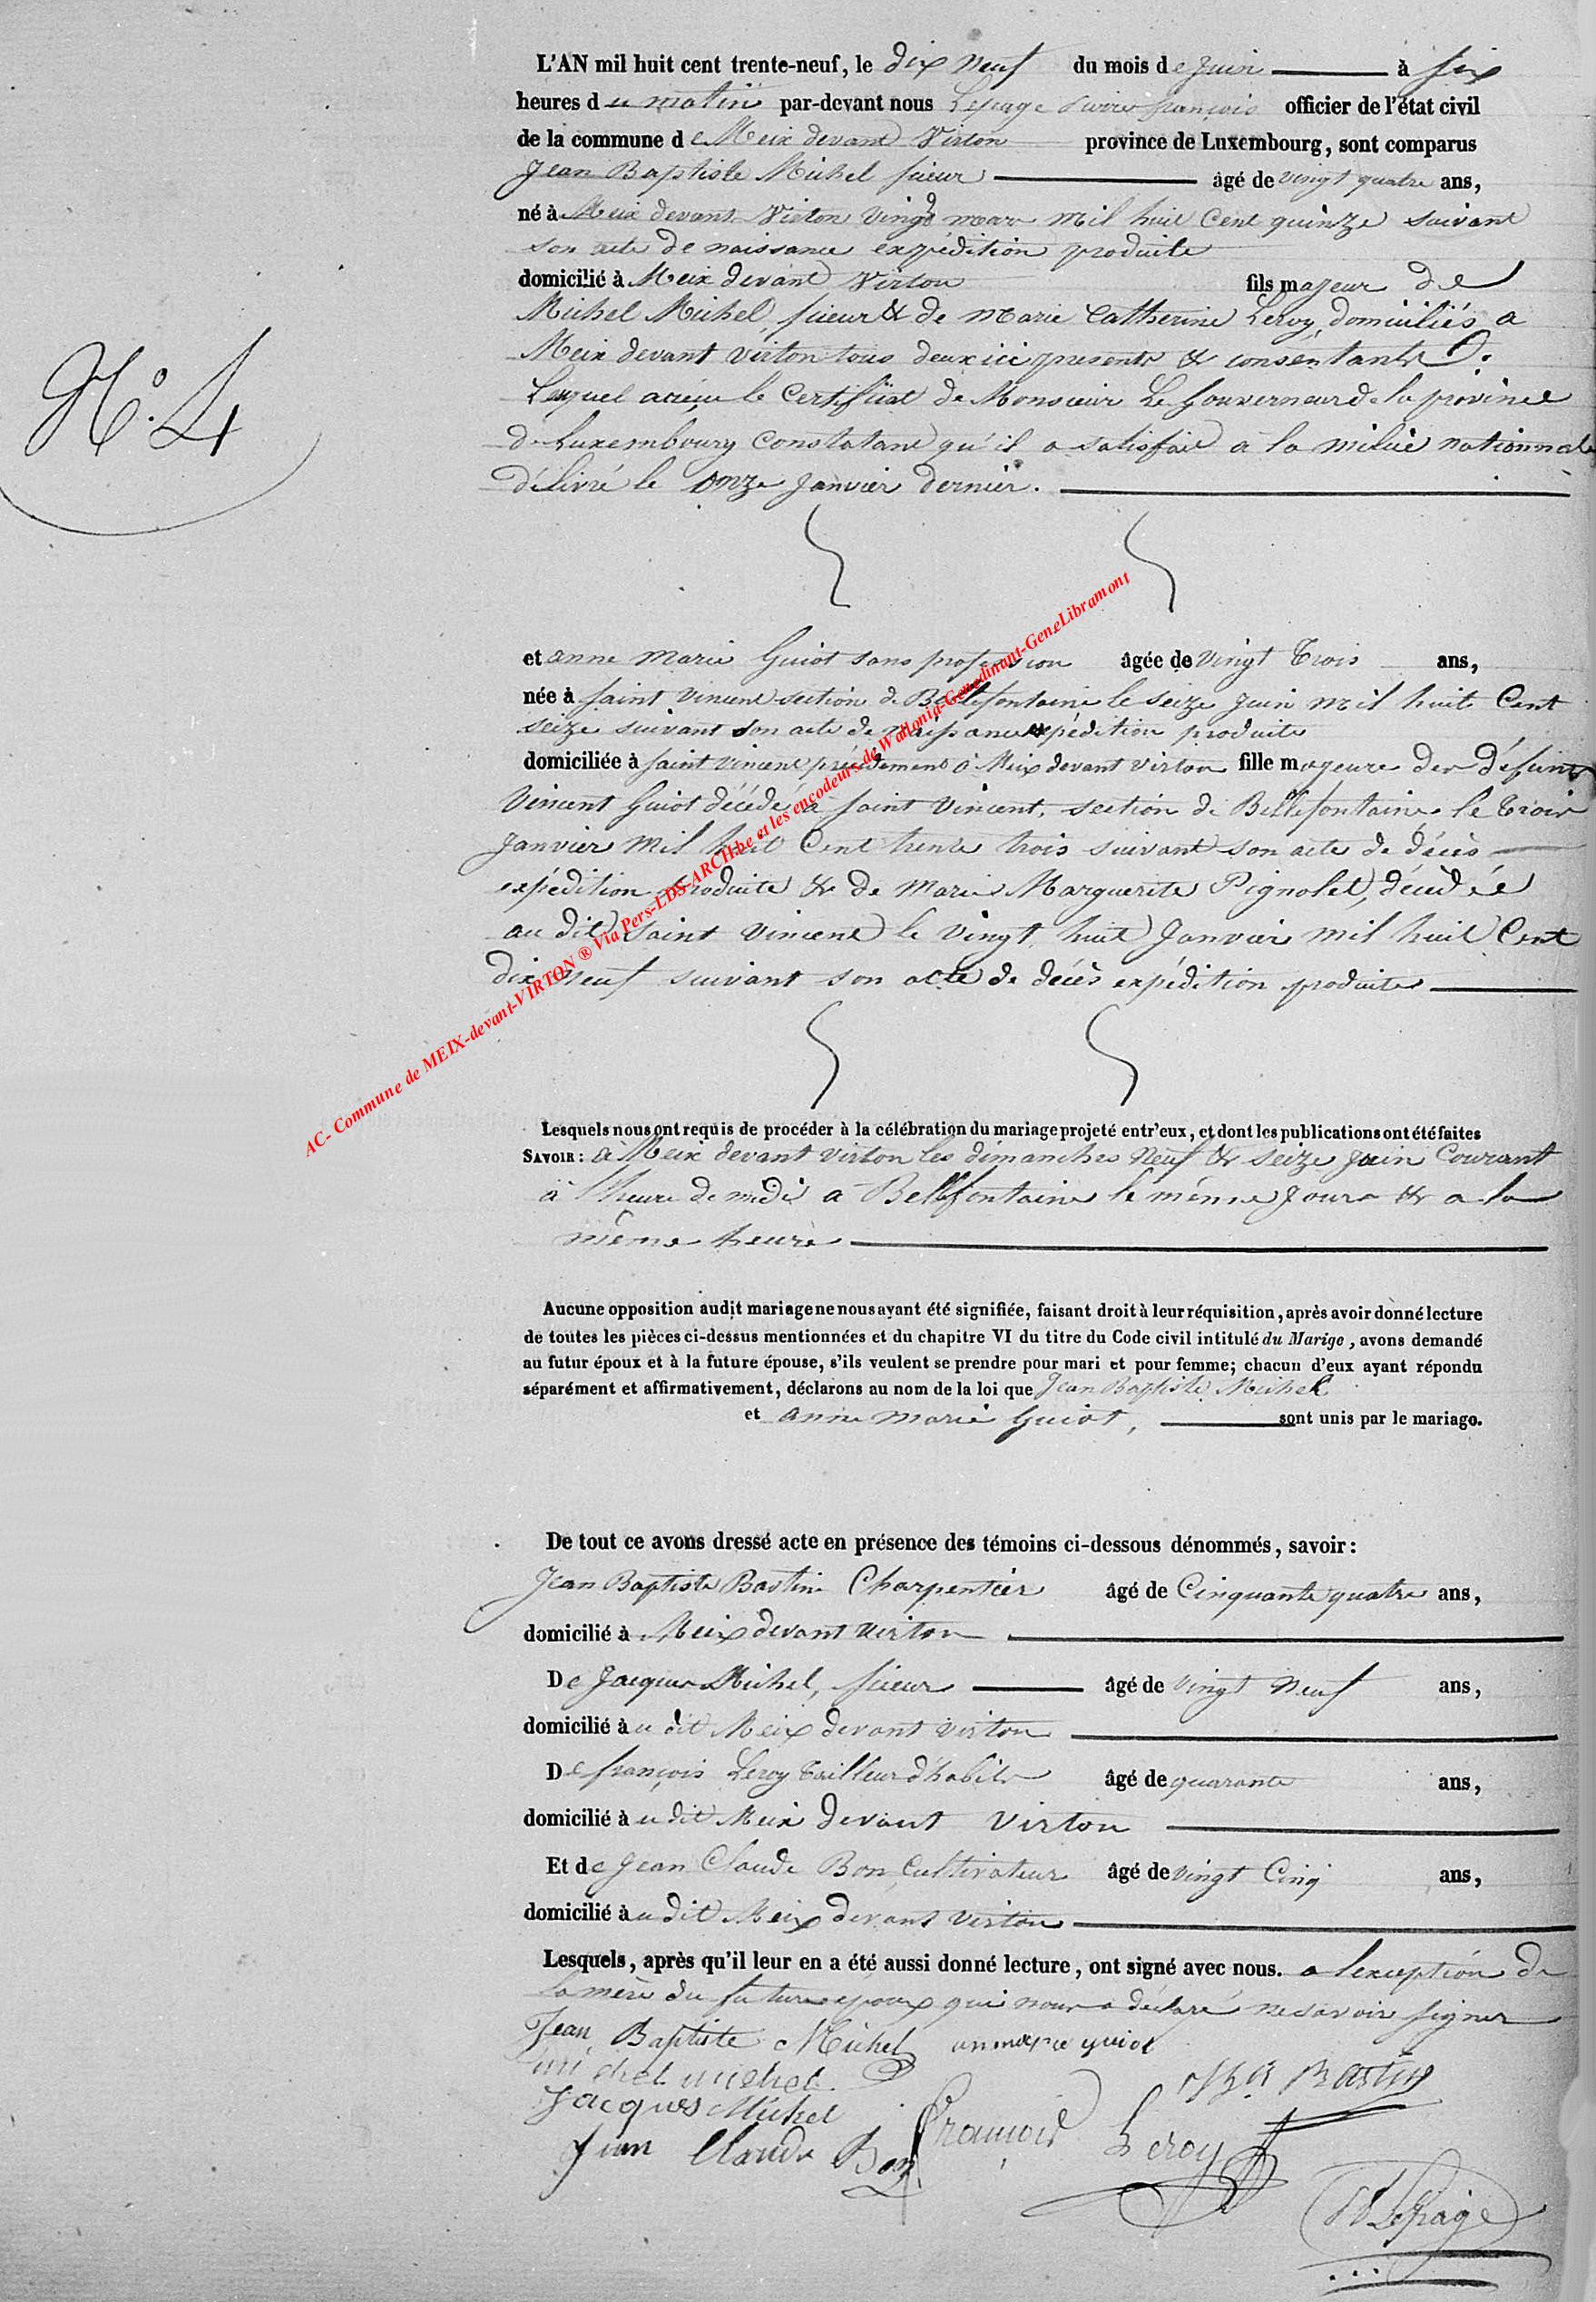 L'AN mil huit cent trente-neuf, le dix neuf du mois de juin à six
heures du matin par-devant nous Lepage Pierre françois officier de l'état civil
de la commune de Meix devant Virton province de Luxembourg, sont comparus
Jean Baptiste Michel scieur âgé de vingt quatre ans,
né à Meix devant Virton vingt mars mil huit Cent quinze suivant
son acte de naissance expédition produite
domicilié à Meix devant Virton fils majeur de
Michel Michel, scieur & de Marie Catherine Leroy, domiciliés a
Meix devant virton tous deux ici presents & consentants.
Lequel a le Certificat de Monsieur Le Gouverneur de la province
de Luxembourg Constatant qu'il a satisfait a la milice nationnale
délivré le onze Janvier dernier.
N.° 4
et anne Marie Guiot sans profession âgée de vingt trois ans,
née à saint Vincent section de Bellefontaine le seize Juin mil huit Cent
seize suivant son acte de naissance expédition produite
domiciliée à saint Vincent précédement à Meix devant virton fille majeure des défunts
Vincent Guiot décédé à saint Vincent, section de Bellefontaine le trois
Janvier mil huit Cent trente trois suivant son acte de décès
expédition produite & de Marie Marguerite Pignolet, décédée
au dit saint Vincent le vingt huit Janvier mil huit Cent
dix neuf suivant son acte de décès expédition produite
Lesquels nous ont requis de procéder à la célébration du mariage projeté entr'eux, et dont les publications ont été faites
SAVOIR : à Meix devant virton les dimanches neuf & seize juin Courant
à l'heure de midi a Bellefontaine le même jours & a la
même heure
Aucune opposition audit mariage ne nous ayant été signifiée, faisant droit à leur réquisition, après avoir donné lecture
de toutes les pièces ci-dessus mentionnées et du chapitre VI du titre du Code civil intitulé du Marige, avons demandé
au futur époux et à la future épouse, s'ils veulent se prendre pour mari et pour femme; chacun d'eux ayant répondu
séparément et affirmativement, déclarons au nom de la loi que Jean Baptiste Michel
et anne marie Guiot, sont unis par le mariage.
De tout ce avons dressé acte en présence des témoins ci-dessous dénommés, savoir :
Jean Baptiste Bastin Charpentier âgé de Cinquante quatre ans,
domicilié à Meix devant virton
De Jacques Michel, scieur âgé de vingt neuf ans,
domicilié àu dit Meix devant virton
De françois Leroy tailleur d'habits âgé de quarante ans,
domicilié àu dit Meix devant Virton
Et de Jean Claude Bon, Cultivateur âgé de vingt Cinq ans,
domicilié àu dit Meix devant virton
Lesquels, après qu'il leur en a été aussi donné lecture, ont signé avec nous. a lexception de
la mère du future epoux qui nous a déclaré ne savoir signer
Jean Baptiste Michel anne marie guiot
michel michel
J B Bastin
Jacques Michel
François Leroy
Jean Claude Bon
Lepage
AC- Commune de MEIX-devant-VIRTON ® Via Pers-LDS-ARCH.be et les encodeurs de Wallonia-Genedinant-GeneLibramont